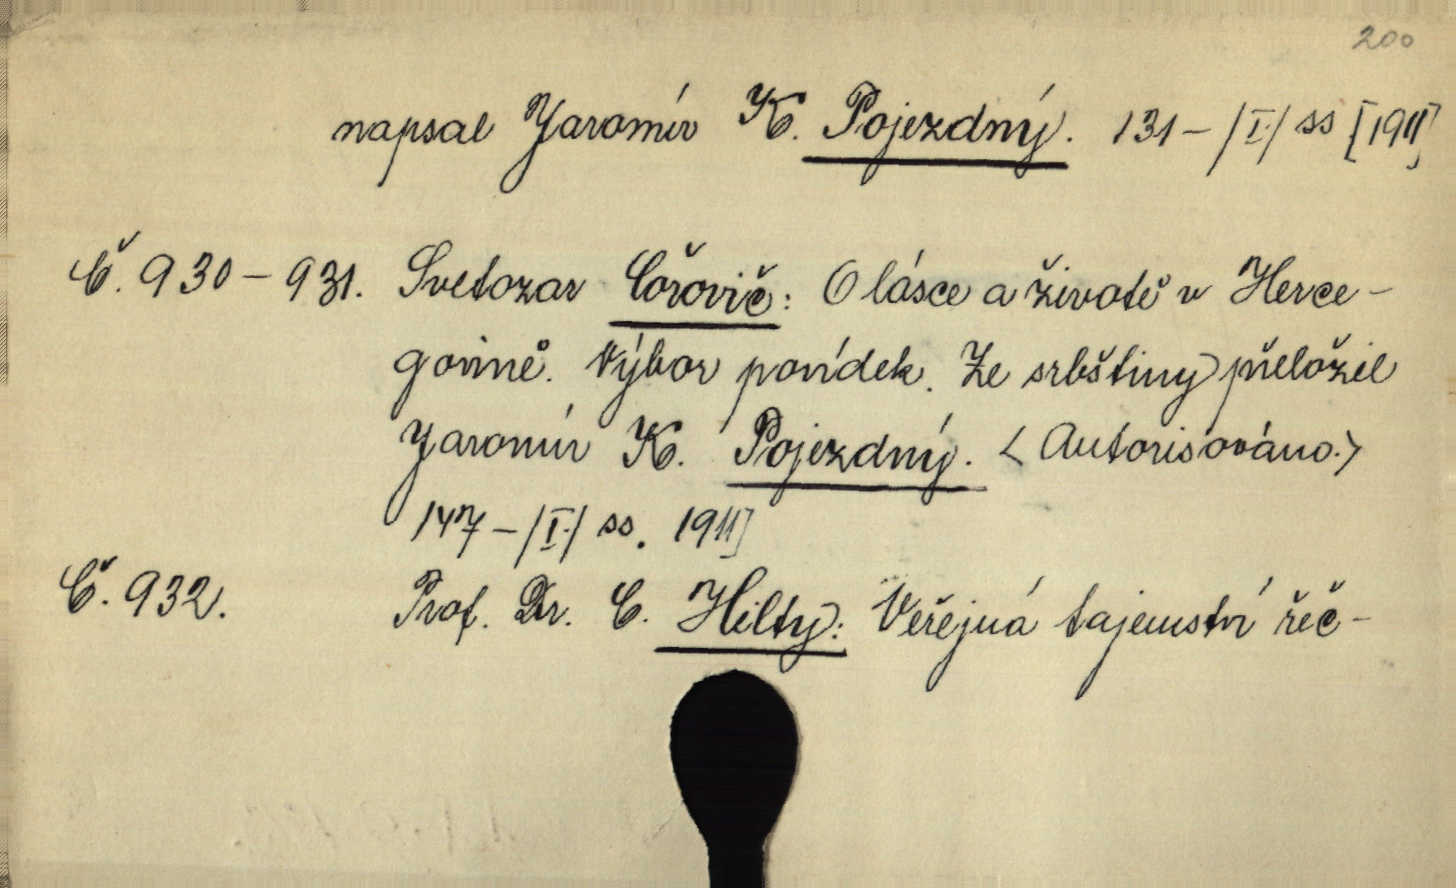 200
napsal Jaromír K. Pojezdný. 131 - /I./ ss [1911]
Č. 930 - 931. Svetozar Čořovič: O lásce a životě v Herce-
govině. Výbor povídek. Ze srbštiny přeložil
Jaromír K. Pojezdný. <Autorisováno.>
147 - /I./ ss. 1911]
Č. 932. Prof. Dr. C. Hilty: Veřejná tajemství řeč-